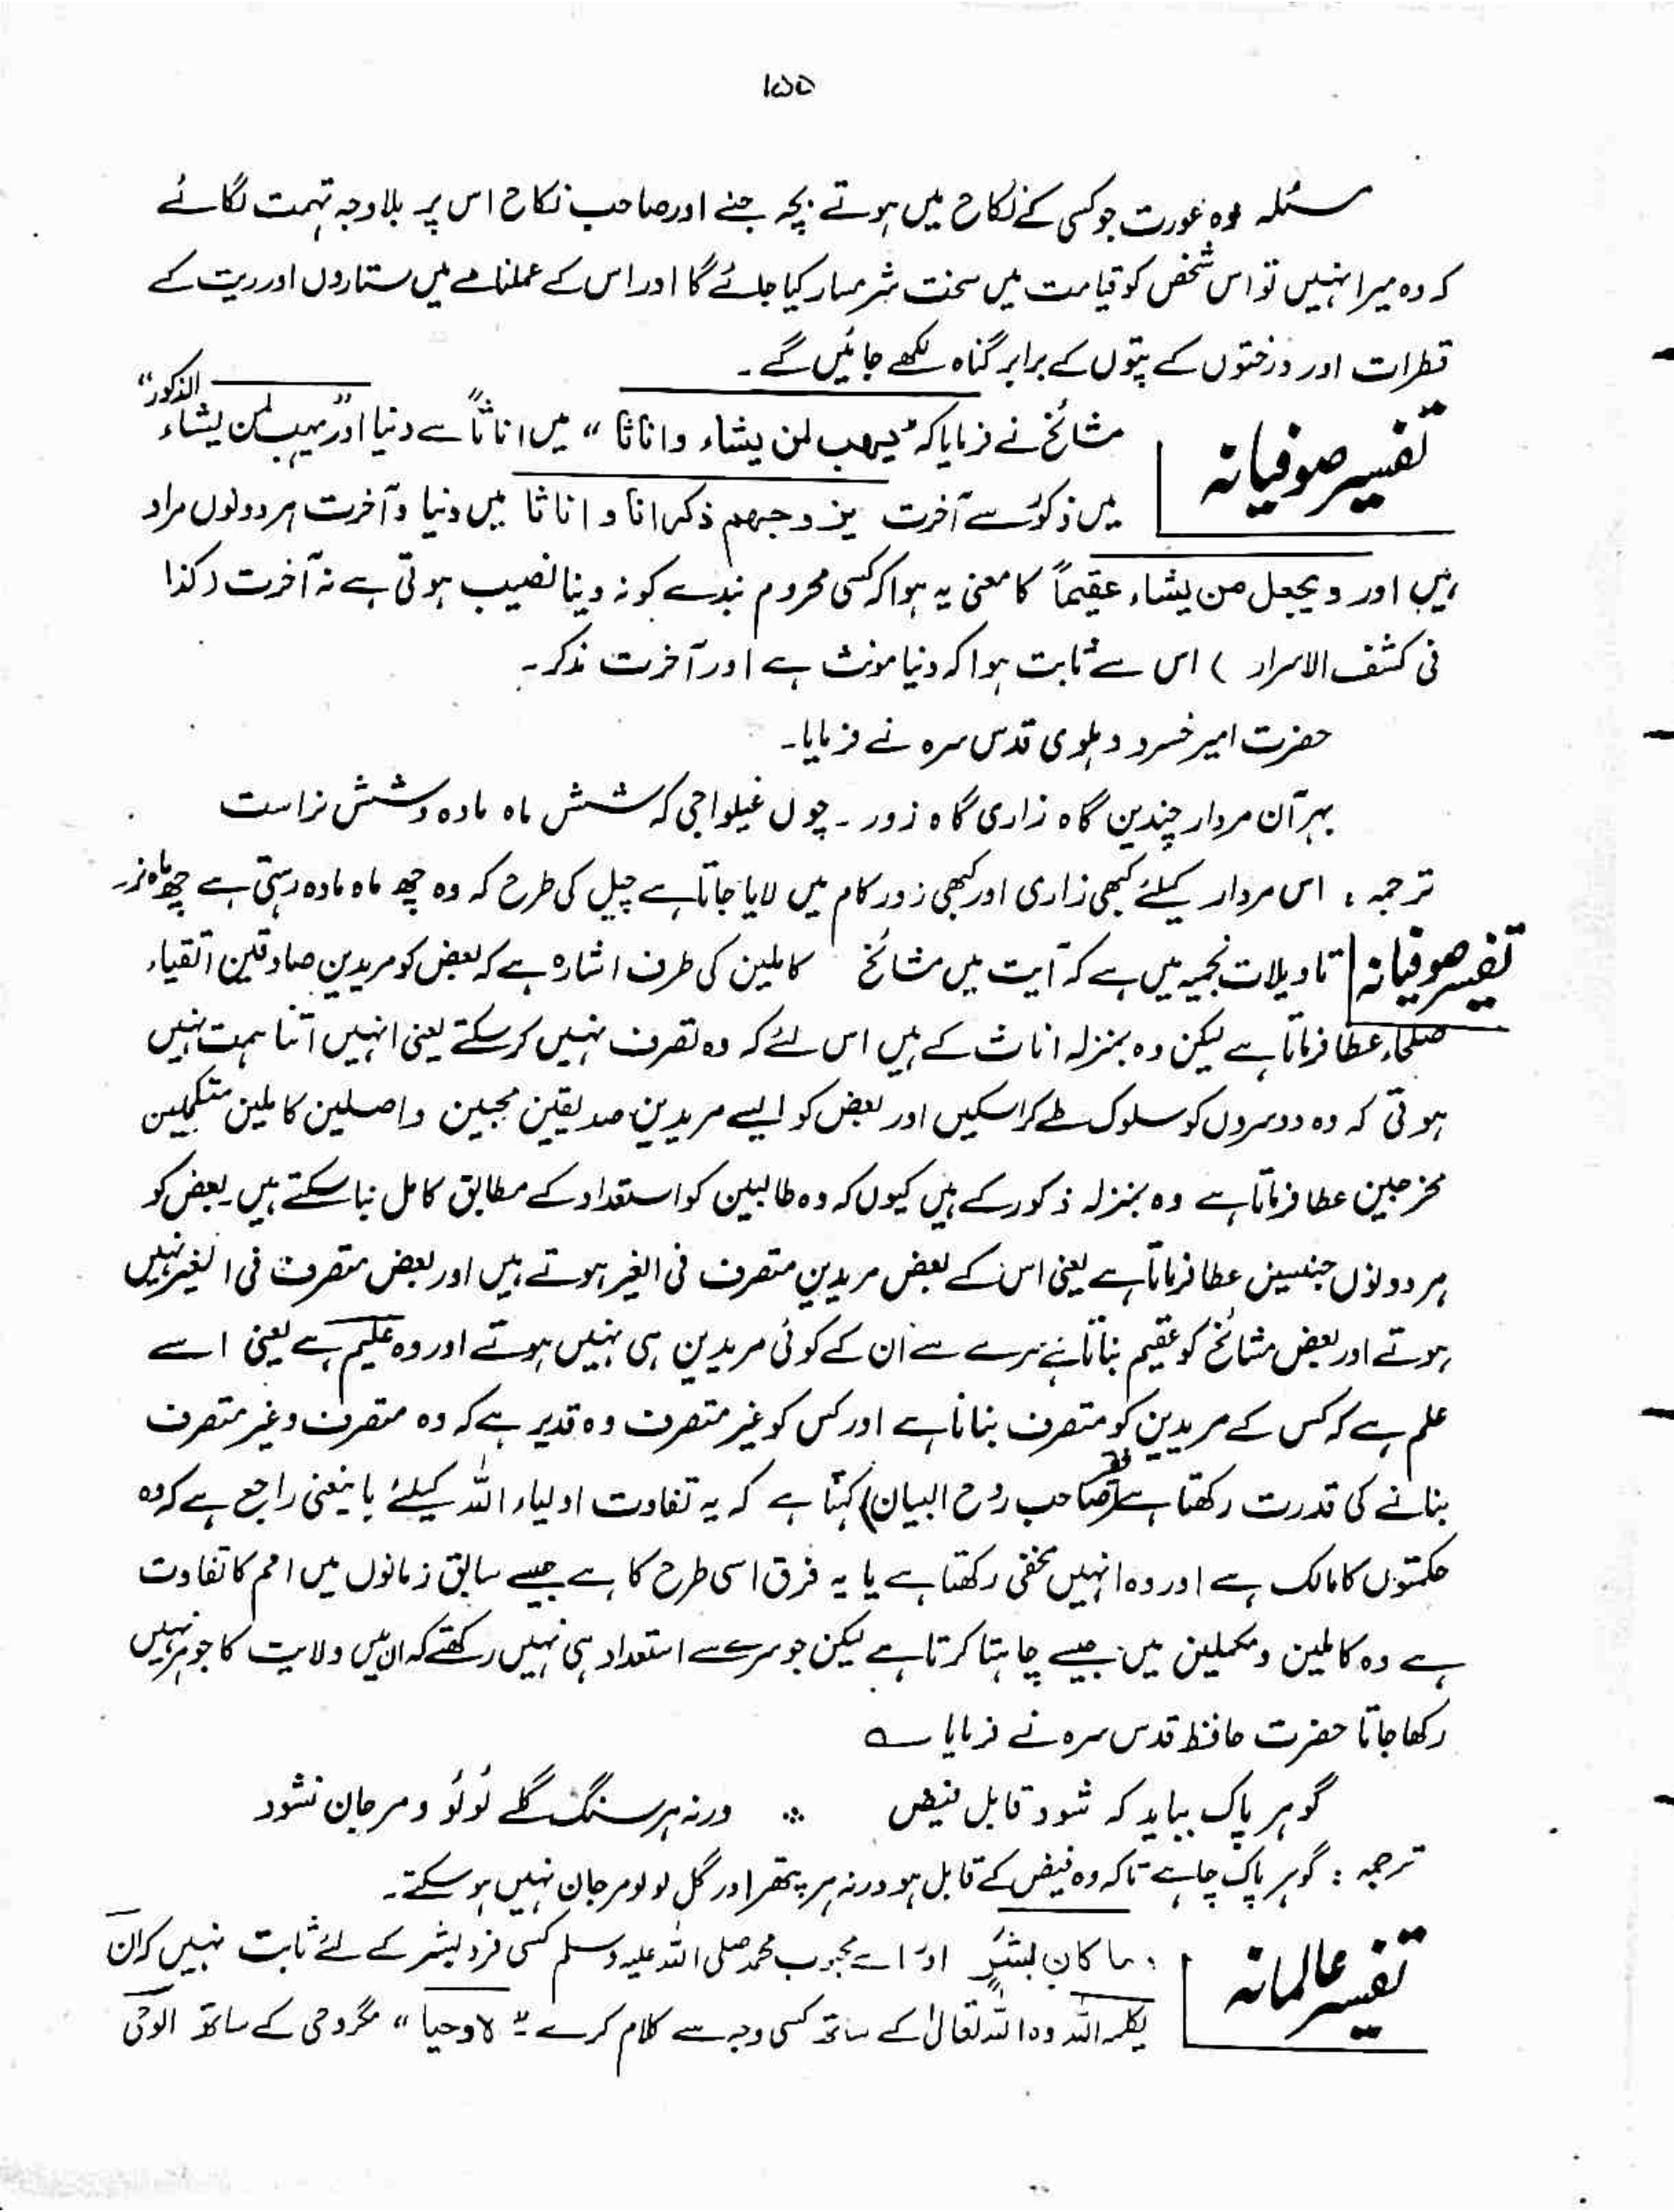 ۱۵۵
مسئلہ وہ عورت جو کسی کے نکاح میں ہوتے بچہ جنے اور صاحب نکاح اس پر بلا وجہ تہمت لگائے
کہ وہ میرا نہیں تو اس شخص کو قیامت میں سخت شرمسار کیا جائے گا اور اس کے عملنامے میں ستاروں اور ریت کے
قطرات اور درختوں کے پتوں کے برابر گناہ لکھے جائیں گے ۔
تفسیر صوفیانہ
مشائخ نے فرمایا کہ ”یہب لمن یشاء واناثا“ میں اناثاً سے دنیا اور ”یہب لمن یشاء الذکور“
میں ذکور سے آخرت یزوجہم ذکرانا و اناثا میں دنیا و آخرت ہر دونوں مراد
ہیں اور ویجعل من یشاء عقیماً کا معنی یہ ہوا کہ کسی محروم بندے کو نہ دینا نصیب ہوتی ہے نہ آخرت (کذا
فی کشف الاسرار ) اس سے ثابت ہوا کہ دنیا مونث ہے اور آخرت مذکر ۔
حضرت امیر خسرو دہلوی قدس سرہ نے فرمایا ۔
بہر آن مردار چندین گاہ زاری گاہ زور ۔ چوں غیلواجی کہ شش ماہ مادہ و شش نراست
ترجمہ : اس مردار کیلئے کبھی زاری اور کبھی زور کام میں لایا جاتا ہے چیل کی طرح کہ وہ چھ ماہ مادہ رہتی ہے چھ ماہ نر ۔
تفسیر صوفیانہ
تاویلات نجمیہ میں ہے کہ آیت میں مشائخ کاملین کی طرف اشارہ ہے کہ بعض کو مریدین صادقین اتقیاء
صلحاء عطا فرماتا ہے لیکن وہ بمنزلہ اناث کے ہیں اس لئے کہ وہ تصرف نہیں کر سکتے یعنی انہیں اتنا ہمت نہیں
ہوتی کہ وہ دوسروں کو سلوک طے کراسکیں اور بعض کو ایسے مریدین صدیقین محبین واصلین کاملین متکملین
مخرجین عطا فرماتا ہے وہ بمنزلہ ذکور کے ہیں کیوں کہ وہ طالبین کو استعداد کے مطابق کامل بنا سکتے ہیں ۔ بعض کو
ہر دونوں جنسین عطا فرماتا ہے یعنی اس کے بعض مریدین متصرف فی الغیر ہوتے ہیں اور بعض متصرف فی الغیر نہیں
ہوتے اور بعض مشائخ کو عقیم بناتا ہے سرے سے ان کے کوئی مریدین ہی نہیں ہوتے اور وہ علیم ہے یعنی اسے
علم ہے کہ کس کے مریدین کو متصرف بنانا ہے اور کس کو غیر متصرف وہ قدیر ہے کہ وہ متصرف و غیر متصرف
بنانے کی قدرت رکھتا ہے (صاحب روح البیان) کہتا ہے کہ یہ تفاوت اولیاء اللہ کیلئے بایں معنی راجع ہے کہ وہ
حکمتوں کا مالک ہے اور وہ انہیں مخفی رکھتا ہے یا یہ فرق اسی طرح کا ہے جیسے سابق زمانوں میں امم کا تفاوت
ہے وہ کاملین و مکملین میں جیسے چاہتا کرتا ہے لیکن جو سرے سے استعداد ہی نہیں رکھتے کہ ان میں ولایت کا جوہر نہیں
رکھا جاتا حضرت حافظ قدس سرہ نے فرمایا ؎
گوہر پاک بباید کہ شود قابل فیض ٭ ورنہ ہر سنگ گلے لُولُو و مرجان نشود
ترجمہ : گوہر پاک چاہے تاکہ وہ فیض کے قابل ہو ورنہ ہر پتھر اور گل لولو مرجان نہیں ہو سکتے ۔
تفسیر عالمانہ
وما کان لبشرٍ اور اے محبوب محمد صلی اللہ علیہ وسلم کسی فرد بشر کے لئے ثابت نہیں کہ ان
یکلمہ اللہ وہ اللہ تعالیٰ کے ساتھ کسی وجہ سے کلام کرے ” لا وحیا “ مگر وحی کے ساتھ الوحی